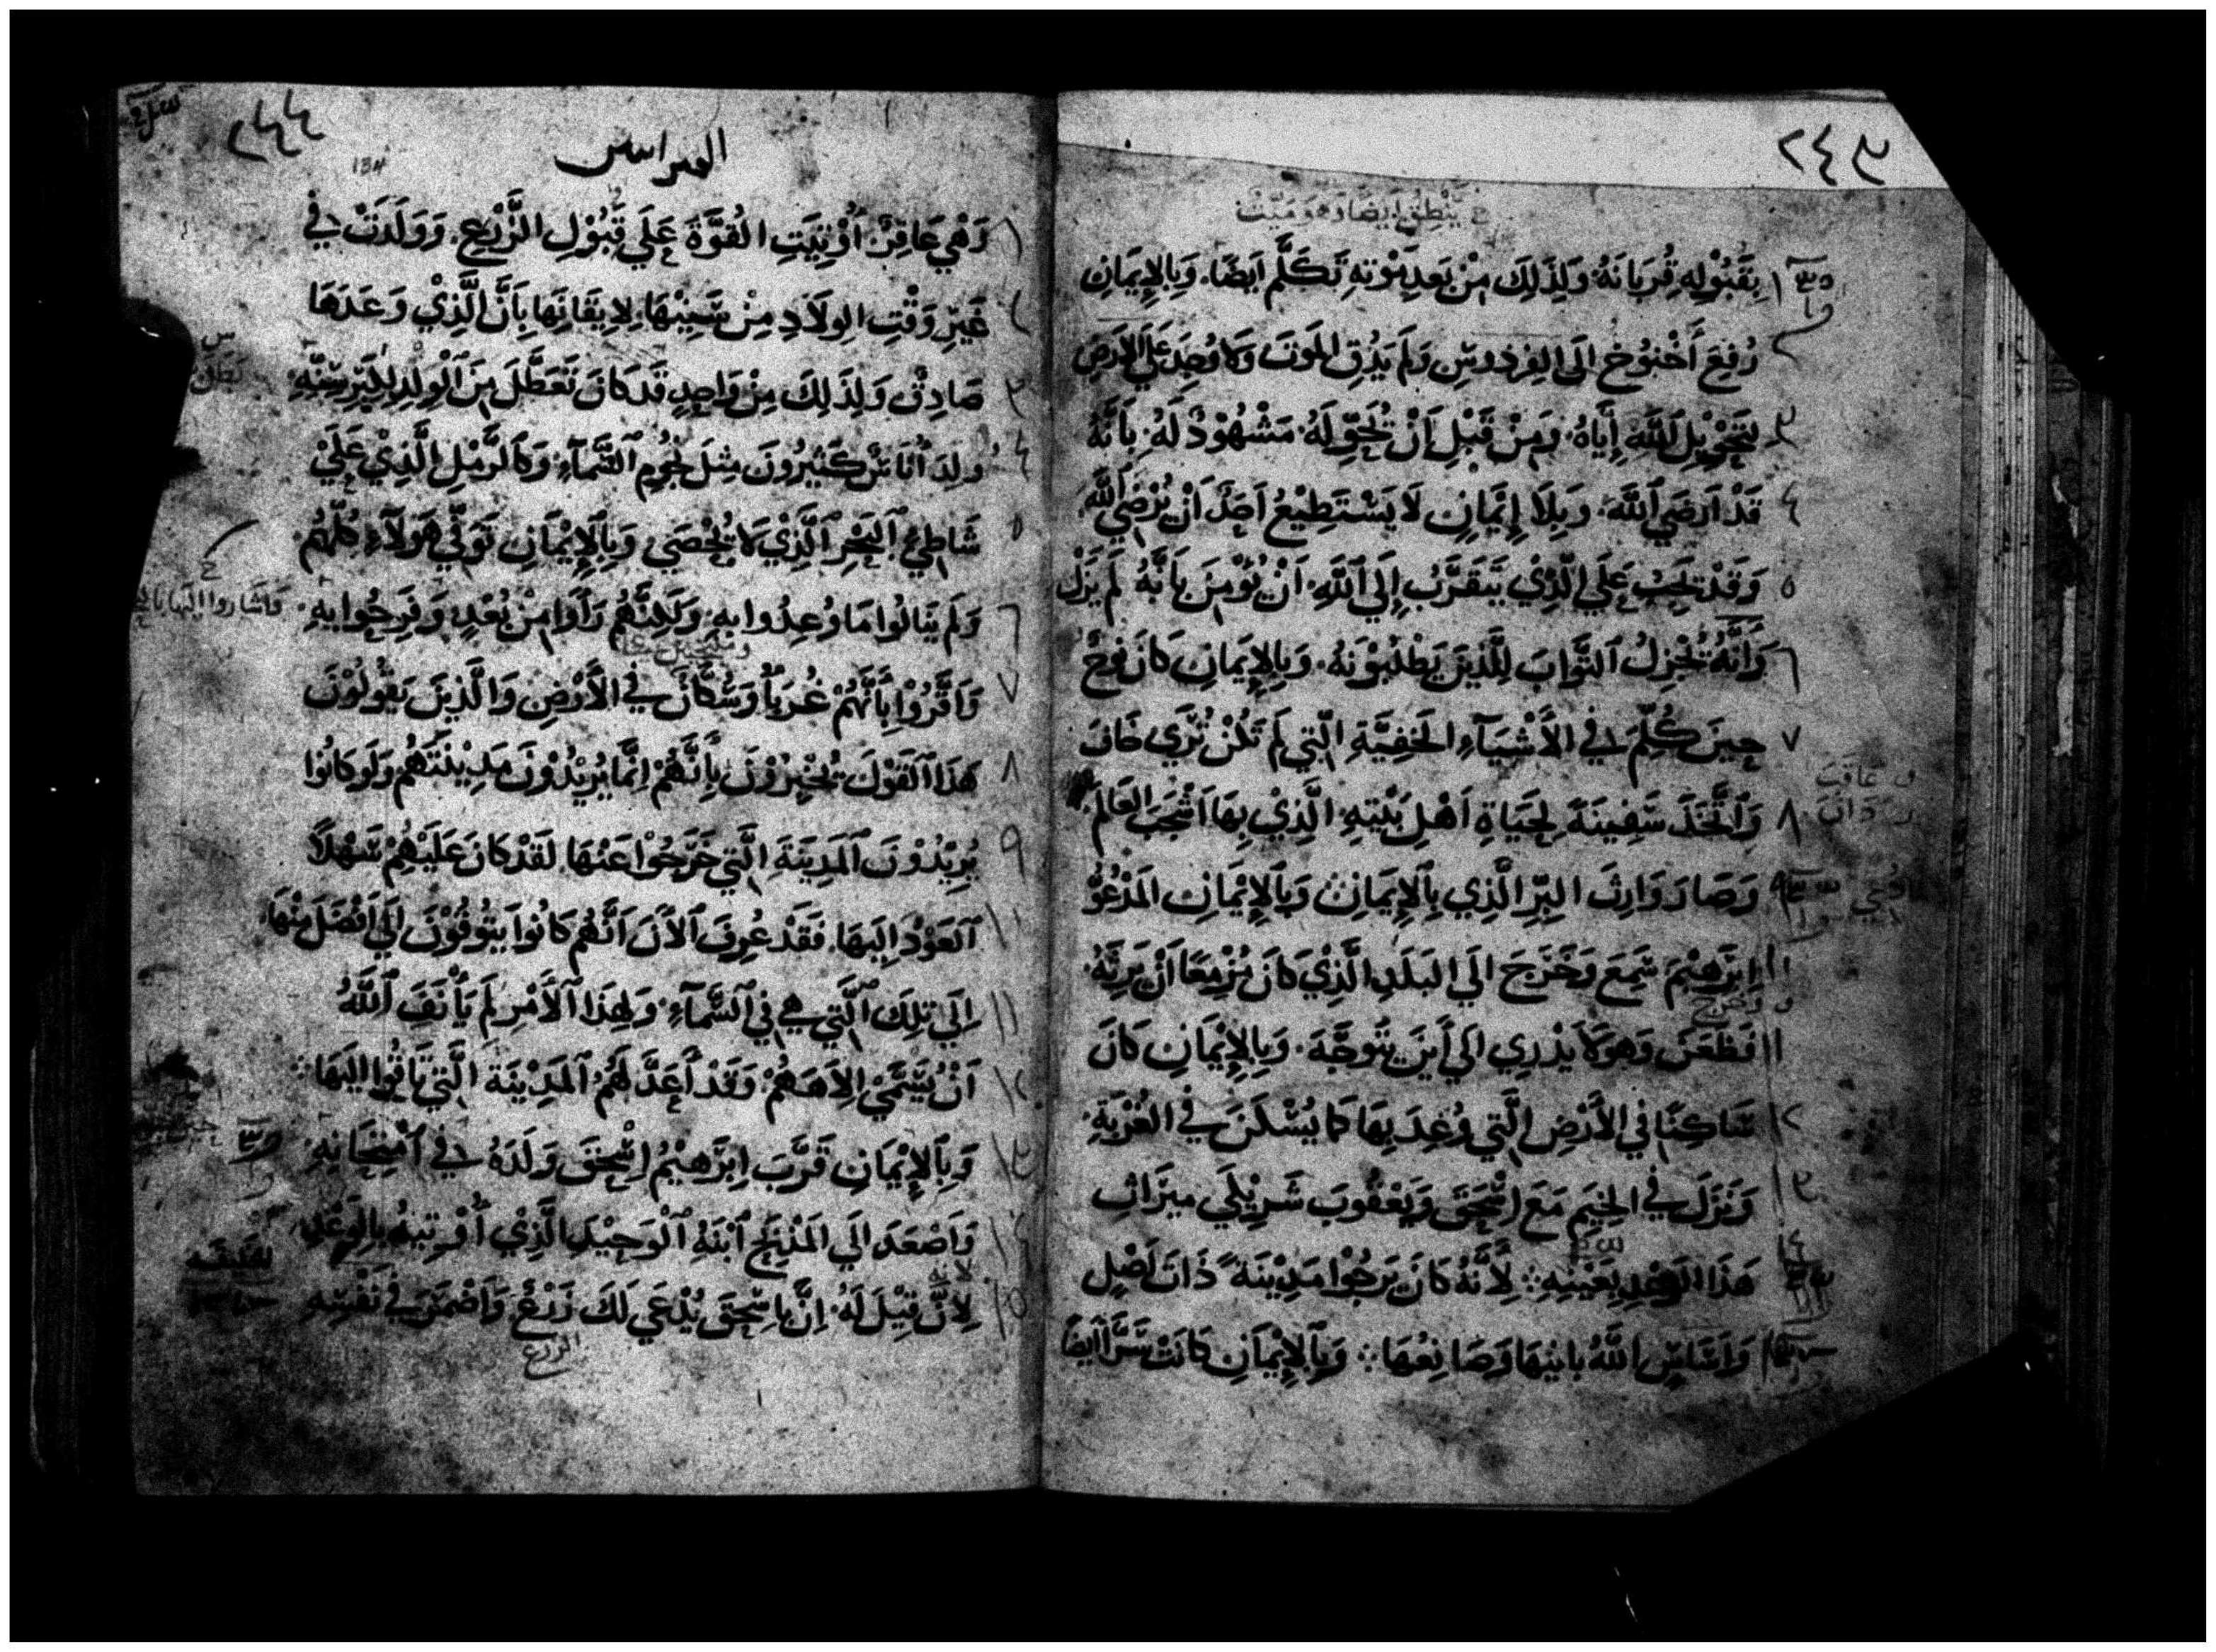 ٢٤٣
ينطق ايضا وهو ميت
١ بِقَبُولِهِ قُربَانَهُ وَلِذَلِكَ مِنْ بَعدِ مَوْتهِ تَكَلَّم اَيضًا. وَبِالإِيمَانِ
٢ رُفِعَ أَخْنُوخُ الَى الفِردوسِ وَلَم يَذُقِ المَوتَ وَلا وُجِدَ عَلَى الارَضِ
٣ لِتَحْوِيلِ اللَّهِ إِيَّاهُ. وَمِنْ قَبْلِ اَنْ يُحَوِّلَهُ مَشْهُوْدٌ لَهُ بِاَنَّهُ
٤ قَدْ اَرضَي اللَّهَ. وَبِلَا إِيمَانٍ لَا يَسْتَطِيْعُ اَحَدٌ اَنْ يُرْضَي اللَّهَ
٥ وَقَدْ يَجِبُ عَلَي الَّذِيْ يَتَقَرَّبُ إِلَي اللَّهِ. اَنْ يُؤْمِنَ بِاَنَّهُ لَم يَزَلْ
٦ وَاَنَّهُ يُجْزِلُ الثَّوابَ لِلَّذِينَ يَطْلُبُوْنَهُ. وَبِالإِيمَانِ كَانَ نُوحٌ
٧ حِينَ كُلِّمَ فِي الأَشْيَآءِ الخَفِيَّةِ الَّتِي لَم تَكُنْ تُرَي خَافَ
٨ وَاتَّخَذَ سَفِينَةً لِحَيَاةِ اَهْلِ بَيْتِهِ. الَّذِيْ بِهَا اَشْجَبَ العَالَمَ.
٩ وَصَارَ وَارِثَ البِرِّ الَّذِي بِالإِيمَانِ وَبِالإِيْمَانِ المَدْعُوُّ
١٠ اِبْرَهِيْمَ سَمِعَ وَخَرَجَ الَي البَلَدِ الَّذِيْ كَانَ مُزْمِعًا اَنْ يَرِثَهُ.
وخرج
١١ فَظَعَنَ وَهوَ لَا يَدْرِي الي اَينَ يَتَوجَّهَ. وَبِالإِيْمَانِ كَانَ
١٢ سَاكِنًا فِي الأَرْضِ الَّتِي وُعِدَ بِهَا كَمَا يُسْكَنَ فِي الغُرْبَةِ.
١٣ وَنَزَلَ فِي الخِيَم مَعَ اِسْحَقَ وَيَعْقُوبَ شَرِيْكَي مِيرَاثِ
١٤ هَذَا الوَعْدِ بِعَيْنِهِ لِأَنَّهُ كَانَ يَرجُوْا مَدِيْنَةً ذَاتَ اَصْلٍ
وَاَسَاسٍ اللَّهُ بانِيهَا وَصَانِعُهَا وَبِالإِيْمَانِ كَانَتْ سَرَّا ايضًا
٢٤٤
134
العبرانيين
١ وَهْيَ عَاقِرٌ. أُوْتِيَتِ القُوَّةَ عَلَي قَبُوْلِ الزَّرْعِ. وَوَلَدَتْ فِي
٢ غَيرِ وَقْتِ الوِلَادِ مِنْ سَنِيْهَا. لِايقَانِهَا بِاَنَّ الَّذِيْ وَعَدَهَا
٣ صَادِقٌ وَلِذَلِكَ مِنْ وَاحِدٍ قَد كَانَ تَعَطَّلَ مِنَ الوِلَدِ لِكِبَرِ سِنِّهِ
٤ وُلِدَ اُنَاسٌ كَثِيْرُونَ مِثلَ نُجُومِ السَّمآءِ. وَكَالرَّمْلِ الَّذِيْ عَلَيْ
٥ شَاطِئِ البَحْرِ الَّذِيْ لَا يُحْصَي وَبِالإِيْمَانِ تَوَفِّيَ هَوُلَآءِ كُلُّهُمْ
٦ وَلَم يَنالُوا مَا وُعِدُوا بِهِ. وَلَكِنَّهُمْ رَاَوا مِنْ بُعْدٍ وَفَرِحُوا بهِ.
٧ وَاَقَرُّوْا بِأَنَّهُمْ غُرَبَآُ وَسُكَّانٌ فِي الأَرْضِ وَالَّذِينَ يَقُولُوْنَ
٨ هَذَا القَوْلَ يُخْبِرُوْنَ بِأَنَّهُمْ اِنَّمَا يُرِيْدُوْنَ مَدِيْنَتَهُم وَلَو كَانُوْا
٩ يُرِيْدُوْنَ المَدِينَةَ الَّتِي خَرَجُوْا عَنْهَا. لَقَدْ كَانَ عَلَيْهِمْ سَهْلًا
١٠ العَوْدُ اِلَيهَا. فَقَدْ عُرِفَ الأَنَ اَنَّهُم كَانُوا يَتُوقُوْنَ الَي اَفْضَلَ مِنْهَا.
١١ اِلَي تِلكَ الَّتِي هِي فِي السَّمآءِ. وَلِهَذَا الأَمْرِ لَم يَأْنَفَ اللَّهُ
١٢ اَنْ يُسَمَّيْ اِلاَهَهُمْ وَقَدْ أَعَدَّ لَهُمُ المَدِيْنَةَ الَّتِي تَاقُوا اِلَيهَا
١٣ وَبِالإِيْمَانِ قَرَّبَ اِبْرَهِيْمُ اِسْحَقَ وَلَدَهُ فِي اَمْتِحَانِهِ
١٤ وَاَصْعَدَ الَي المَذْبَحِ ابْنَهُ الوَحِيْدَ الَّذِيْ أُوْتِيهُ بالوَعْدِ
لانه
١٥ لِاَنَّ قِيْلَ لَهُ. اِنَّ بِاِسْحَقَ يُدْعَي لَكَ زَرْعٌ وَاَضْمَرَ فِي نَفْسِهِ
الزرع